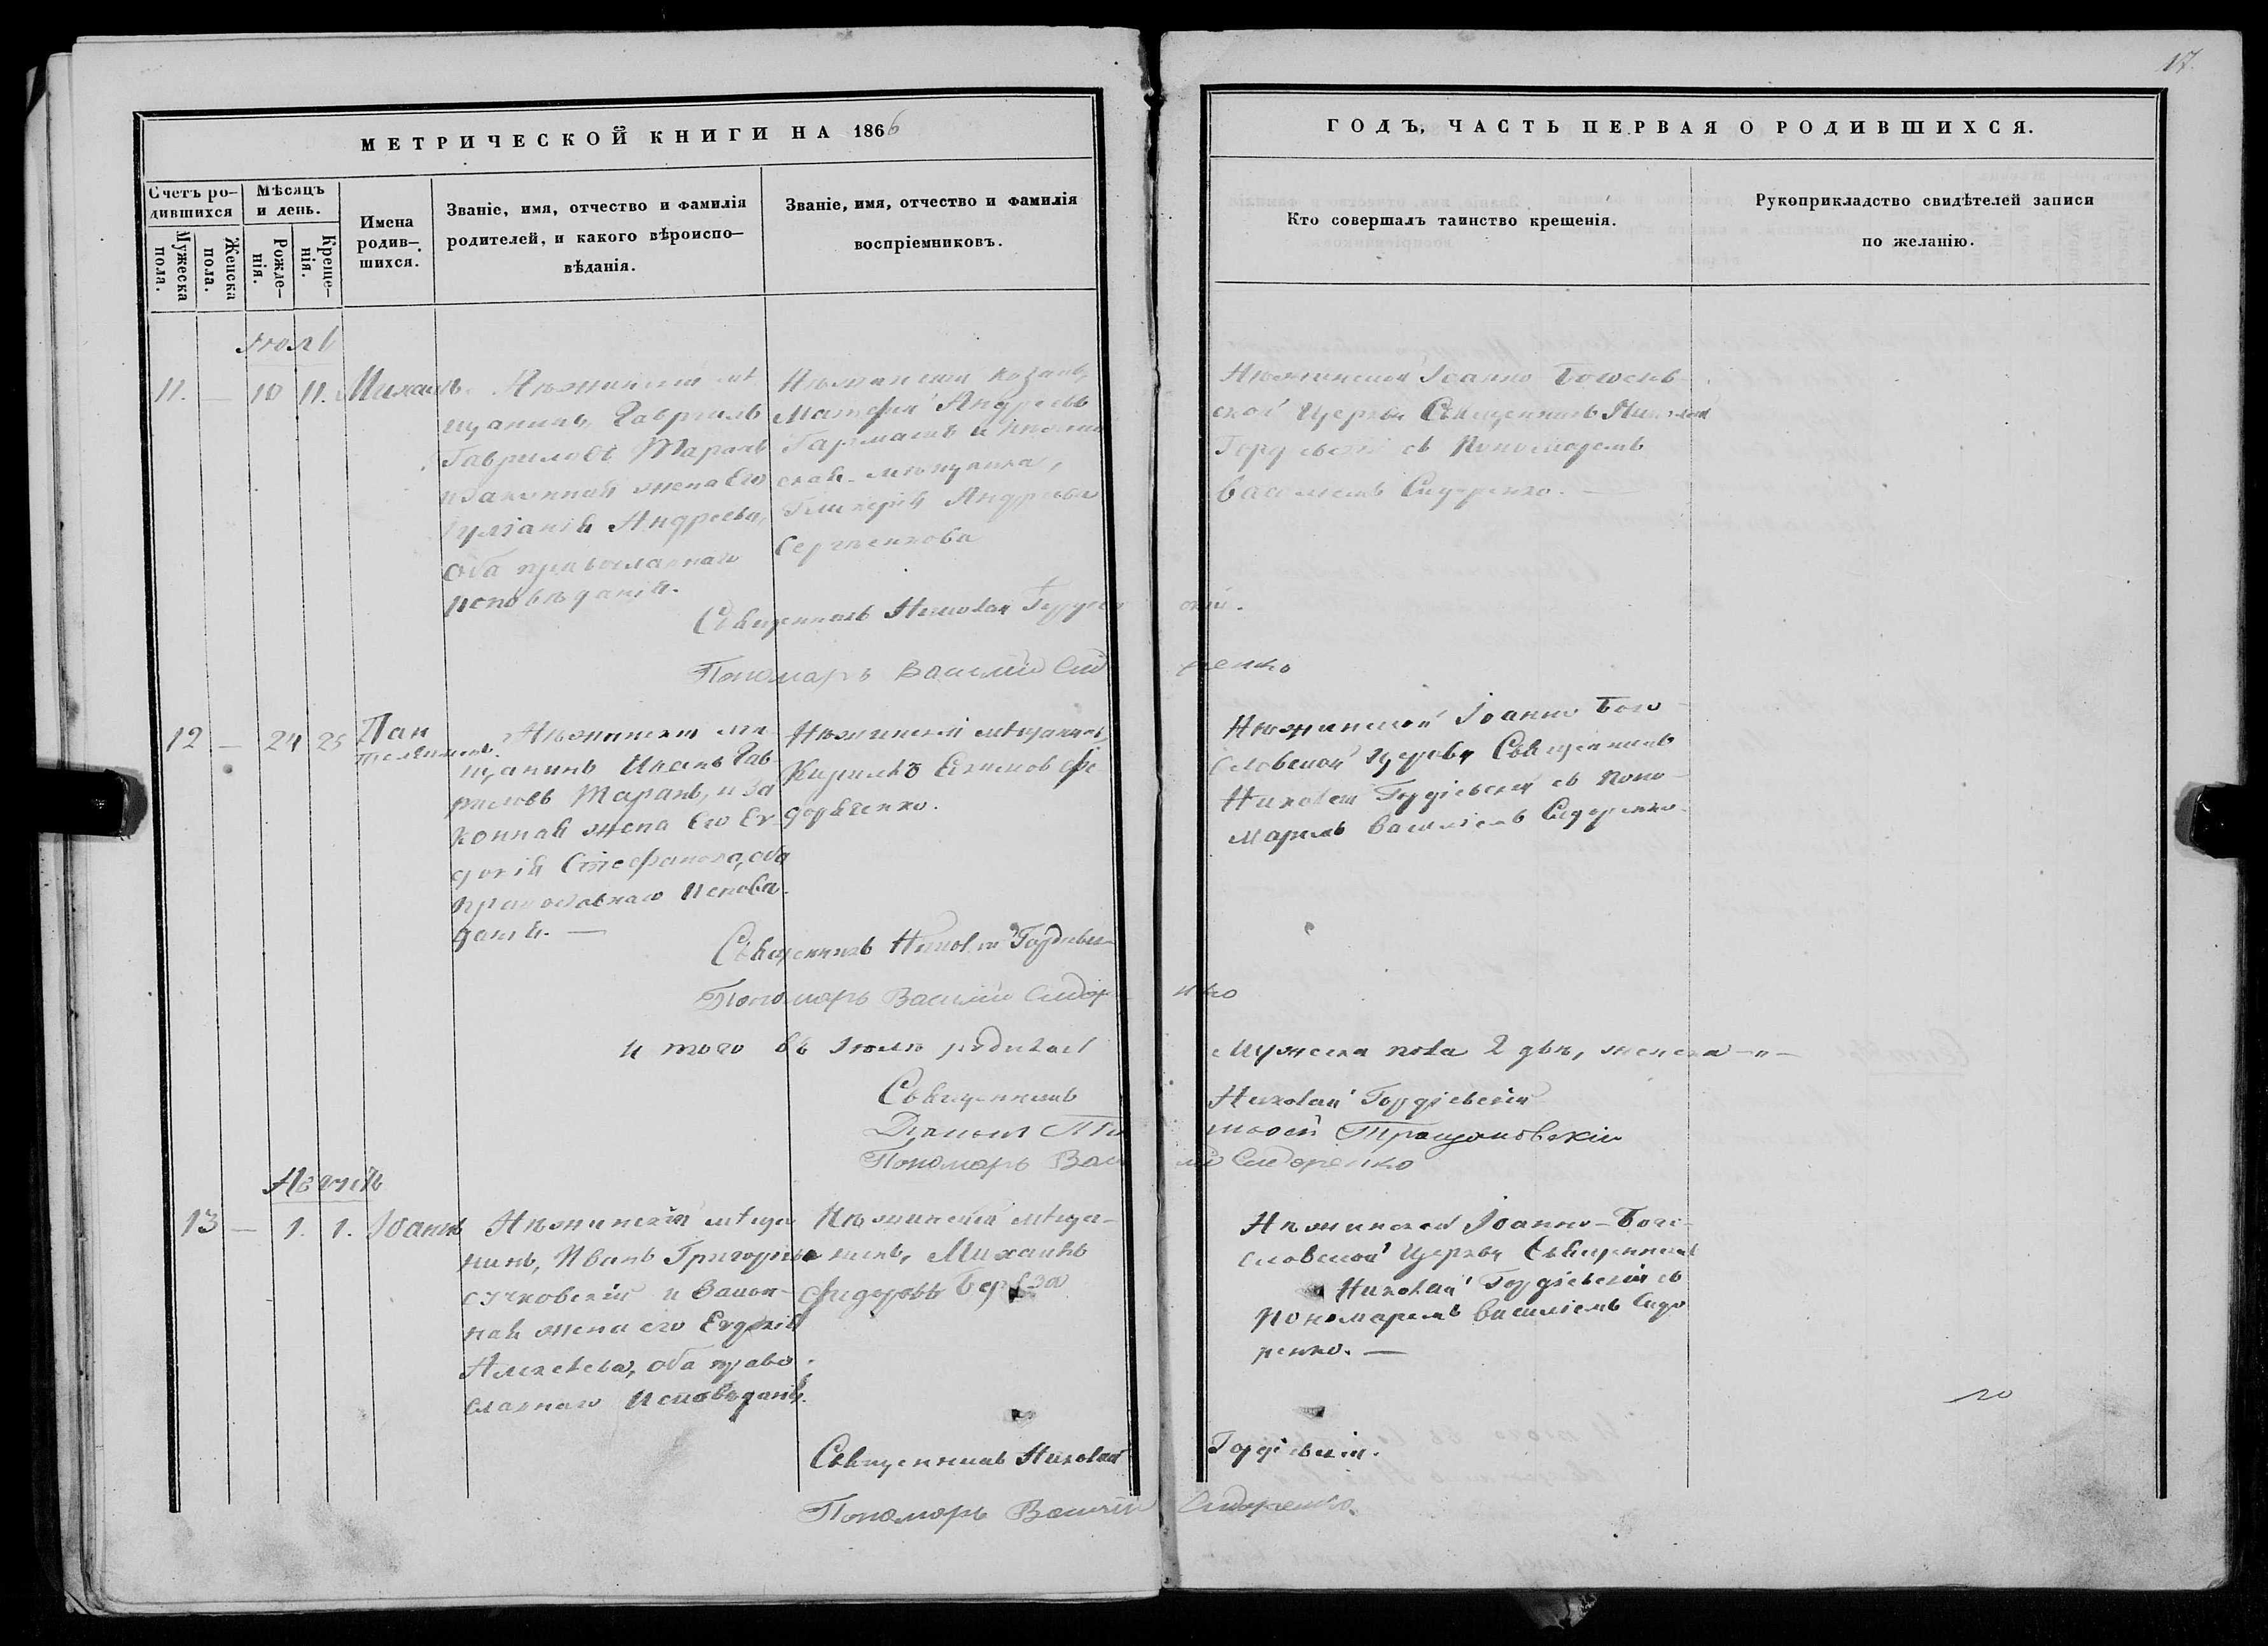 17.
МЕТРИЧЕСКОЙ КНИГИ НА 1866
ГОДЪ, ЧАСТЬ ПЕРВАЯ О РОДИВШИХСЯ.
Счетъ ро-
дившихся
Мужеска
пола.
Женска
пола.
Мѣсяцъ
и день.
Рожде-
нія.
Креще-
нія.
Имена
родив-
шихся.
Званіе, имя, отчество и фамилія
родителей, и какого вѣроиспо-
вѣданія.
Званіе, имя, отчество и фамилія
воспріемниковъ.
Кто совершалъ таинство крещенія.
Рукоприкладство свидѣтелей записи
по желанію.
Іюль
11. — 10 11. Михаилъ
Нѣжинскій мѣ
щанинъ, Гавріилъ
Гавриловъ Таранъ
и законная жена его
Іуліанія Андреева,
оба православнаго
исповѣданія.
Нѣжинскій козакъ,
Матфей Андреевъ
Гармашъ и
ская мѣщанка,
Гликерія Андреева
Сергѣенкова
Нѣжинской Іоанно Богослов
ской Церкви Священникъ Николай
Гордіевскій съ Пономаремъ
Василіемъ Сидоренко. —
Священникъ Николай Гордіевскій.
Пономарь Василій Сидоренко
12 — 24 25 Пан
телеимонъ.
Нѣжинскій мѣ
щанинъ Иванъ Гав
риловъ Таранъ, и за
конная жена его Ев
докія Стефанова, оба
православнаго исповѣ
данія. —
Нѣжинскій мѣщанинъ,
Кириллъ Екимовъ Фе
дорченко.
Нѣжинской Іоанно Бого
словской Церкви Священникъ
Николай Гордіевскій съ Поно
маремъ Василіемъ Сидоренко
Священникъ Николай Гордіевскій
Пономарь Василій Сидоренко
Итого въ Іюлѣ родилось мужеска пола 2 два, женска — „ —
Священникъ Николай Гордіевскій
Діаконъ
Пономарь Василій Сидоренко
Августъ
13 — 1. 1. Іоаннъ
Нѣжинскій мѣща
нинъ, Иванъ Григорьевъ
и закон-
ная жена его Евдокія
Алексѣева, оба право
славнаго исповѣданія.
Нѣжинскій мѣща-
нинъ, Михаилъ
Федоровъ Береза
Нѣжинской Іоанно-Бого-
словской Церкви Священникъ
Николай Гордіевскій съ
Пономаремъ Василіемъ Сидо
ренко. —
Священникъ Николай Гордіевскій.
Пономарь Василій Сидоренко.